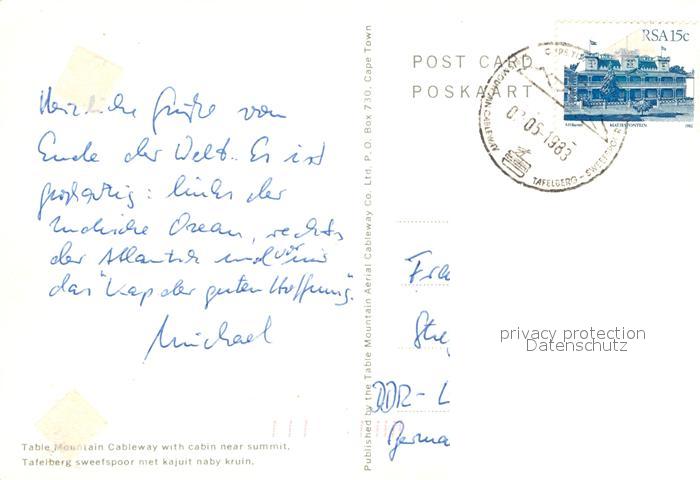 Herzliche Grüße vom
Ende der Welt. Es ist
großartig: links der
Indische Ozean, rechts
der Atlantik und vor uns
das "Kap der guten Hoffnung".
Michael
Table Mountain Cableway with cabin near summit.
Tafelberg sweefspoor met kajuit naby kruin.
Published by the Table Mountain Aerial Cableway Co. Ltd. P.O. Box 730, Cape Town
POST CARD
POSKAART
RSA 15c
MATJIESFONTEIN
1982
05-1983
TAFELBERG - SWEEFSPOOR
Fra
Str
DDR - L
Germa
privacy protection
Datenschutz